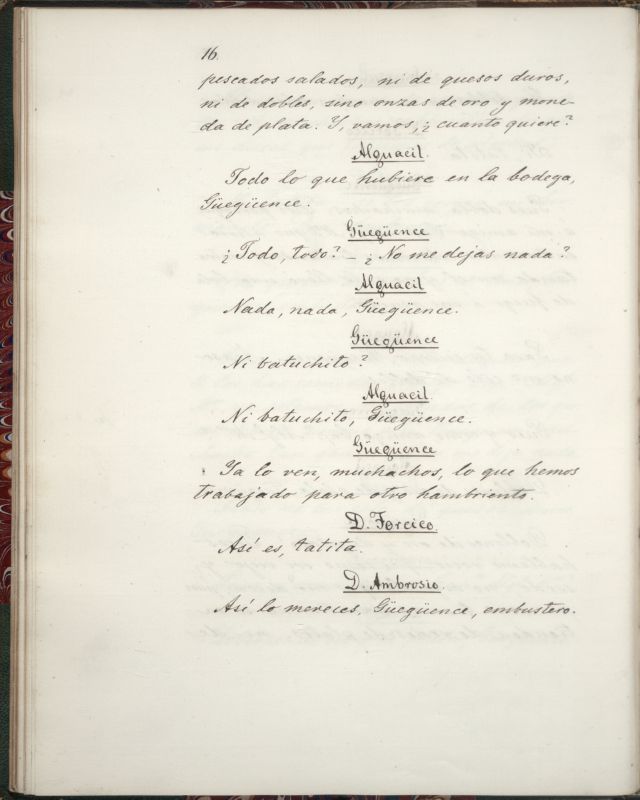 16.
pescados salados, ni de quesos duros,
ni de dobles, sino onzas de oro y mone-
da de plata. Y, vamos, ¿ cuanto quiere?
Alguacil.
Todo lo que hubiere en la bodega,
Güegüence.
Güegüence
¿Todo, todo? – ¿No me dejas nada?
Alguacil
Nada, nada, Güegüence.
Güegüence
Ni batuchito?
Alguacil.
Ni batuchito, Güegüence.
Güegüence
Ya lo ven, muchachos, lo que hemos
trabajado para otro hambriento.
D. Forcico.
Así es, tatita.
D. Ambrosio.
Así lo mereces, Güegüence, embustero.